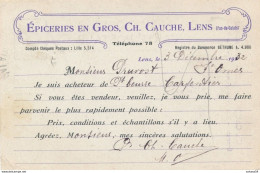 ÉPICERIES EN GROS, CH. CAUCHE, LENS (Pas-de-Calais)
Téléphone 78
Compte Chèques Postaux : Lille 5.314
Registre du Commerce BÉTHUNE L. 4.960
Lens, le 3 Décembre 1932
Monsieur Pruvost St Omer
Je suis acheteur de
Si vous êtes vendeur, veuillez, je vous prie, me faire
parvenir le plus rapidement possible :
Prix, conditions et échantillons s'il y a lieu.
Agréez, Monsieur, mes sincères salutations.
Ch. Cauche